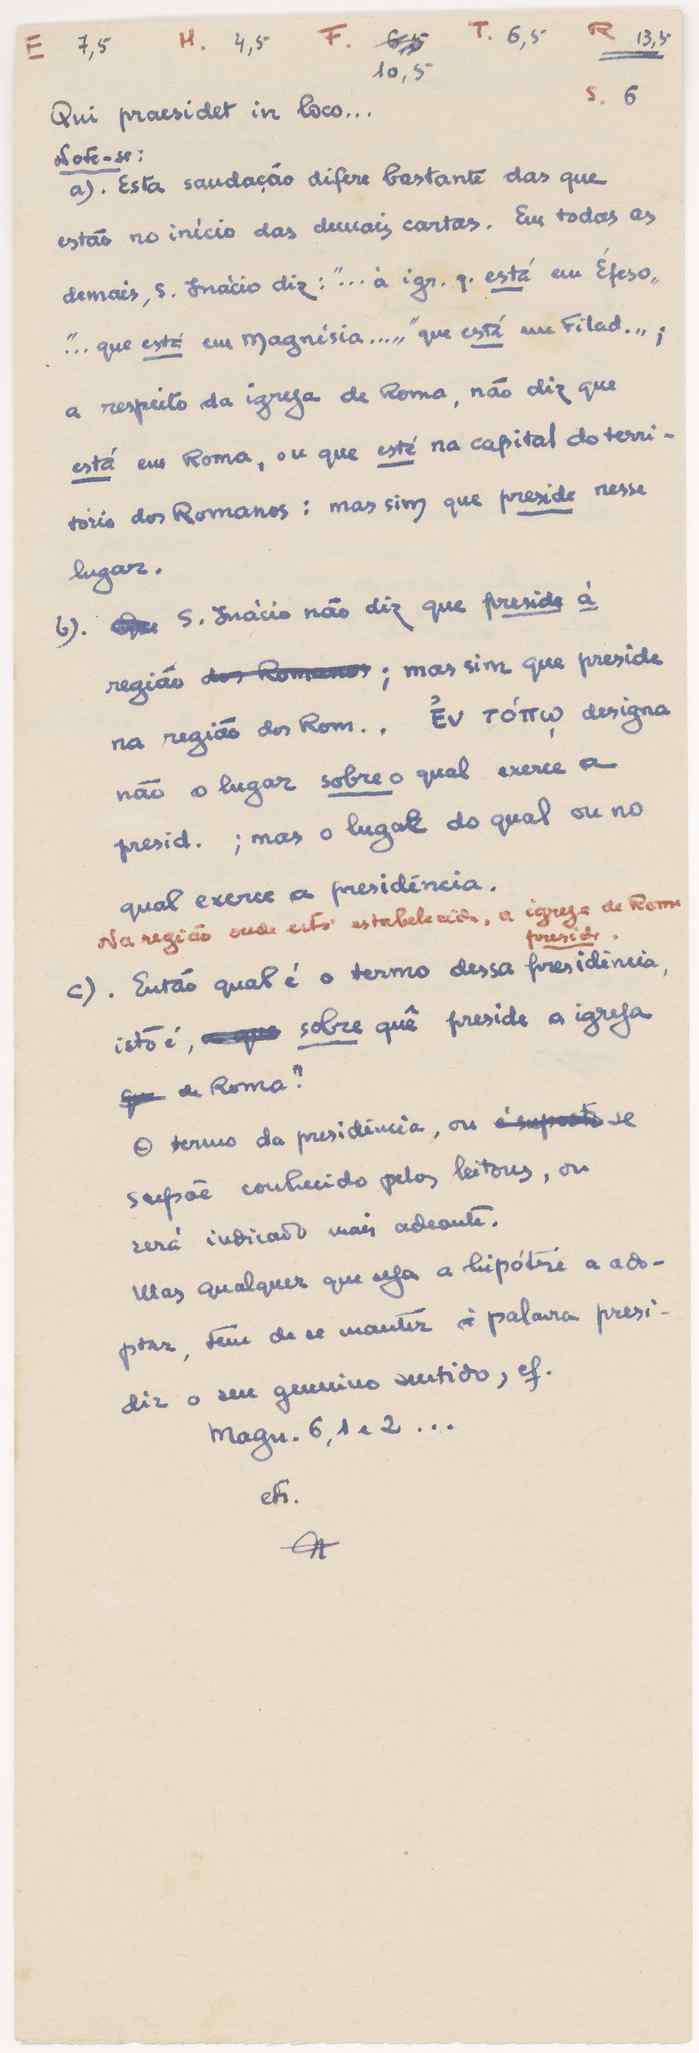 E 7,5 M. 4,5 F. 6,5 T. 6,5 R 13,5
10,5
S. 6
Qui praesidet in loco...
Note-se:
a). Esta saudação difere bastante das que
estão no início das demais cartas. Em todas as
demais, S. Inácio diz: "... à igr. q. está em Éfeso„
"... que está em Magnésia....„ "que está em Filad..„ ;
a respeito da igreja de Roma, não diz que
está em Roma, ou que está na capital do terri-
tório dos Romanos : mas sim que preside nesse
lugar.
b). Que S. Inácio não diz que preside à
região dos Romanos ; mas sim que preside
na região dos Rom. . Ἐν τόπῳ designa
não o lugar sobre o qual exerce a
presid. ; mas o lugar do qual ou no
qual exerce a presidência.
Na região onde está estabelecida, a igreja de Roma
preside.
c). Então qual é o termo dessa presidência,
isto é, sobre quê preside a igreja
que de Roma?
O termo da presidência, ou é suposto se
supõe conhecido pelos leitores, ou
será indicado mais adeante.
Mas qualquer que seja a hipótese a ado-
ptar, tem de se manter à palavra presi-
dir o seu genuino sentido, cf.
Magn. 6,1 e 2 ...
etc.